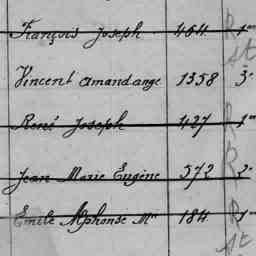 François Joseph 464 R 1re
St
Vincent Amand ange 1358 3e
René Joseph 427 R 1re
Jean Marie Eugène 572 R 2e
Emile Alphonse Mie 184 R 1re
St